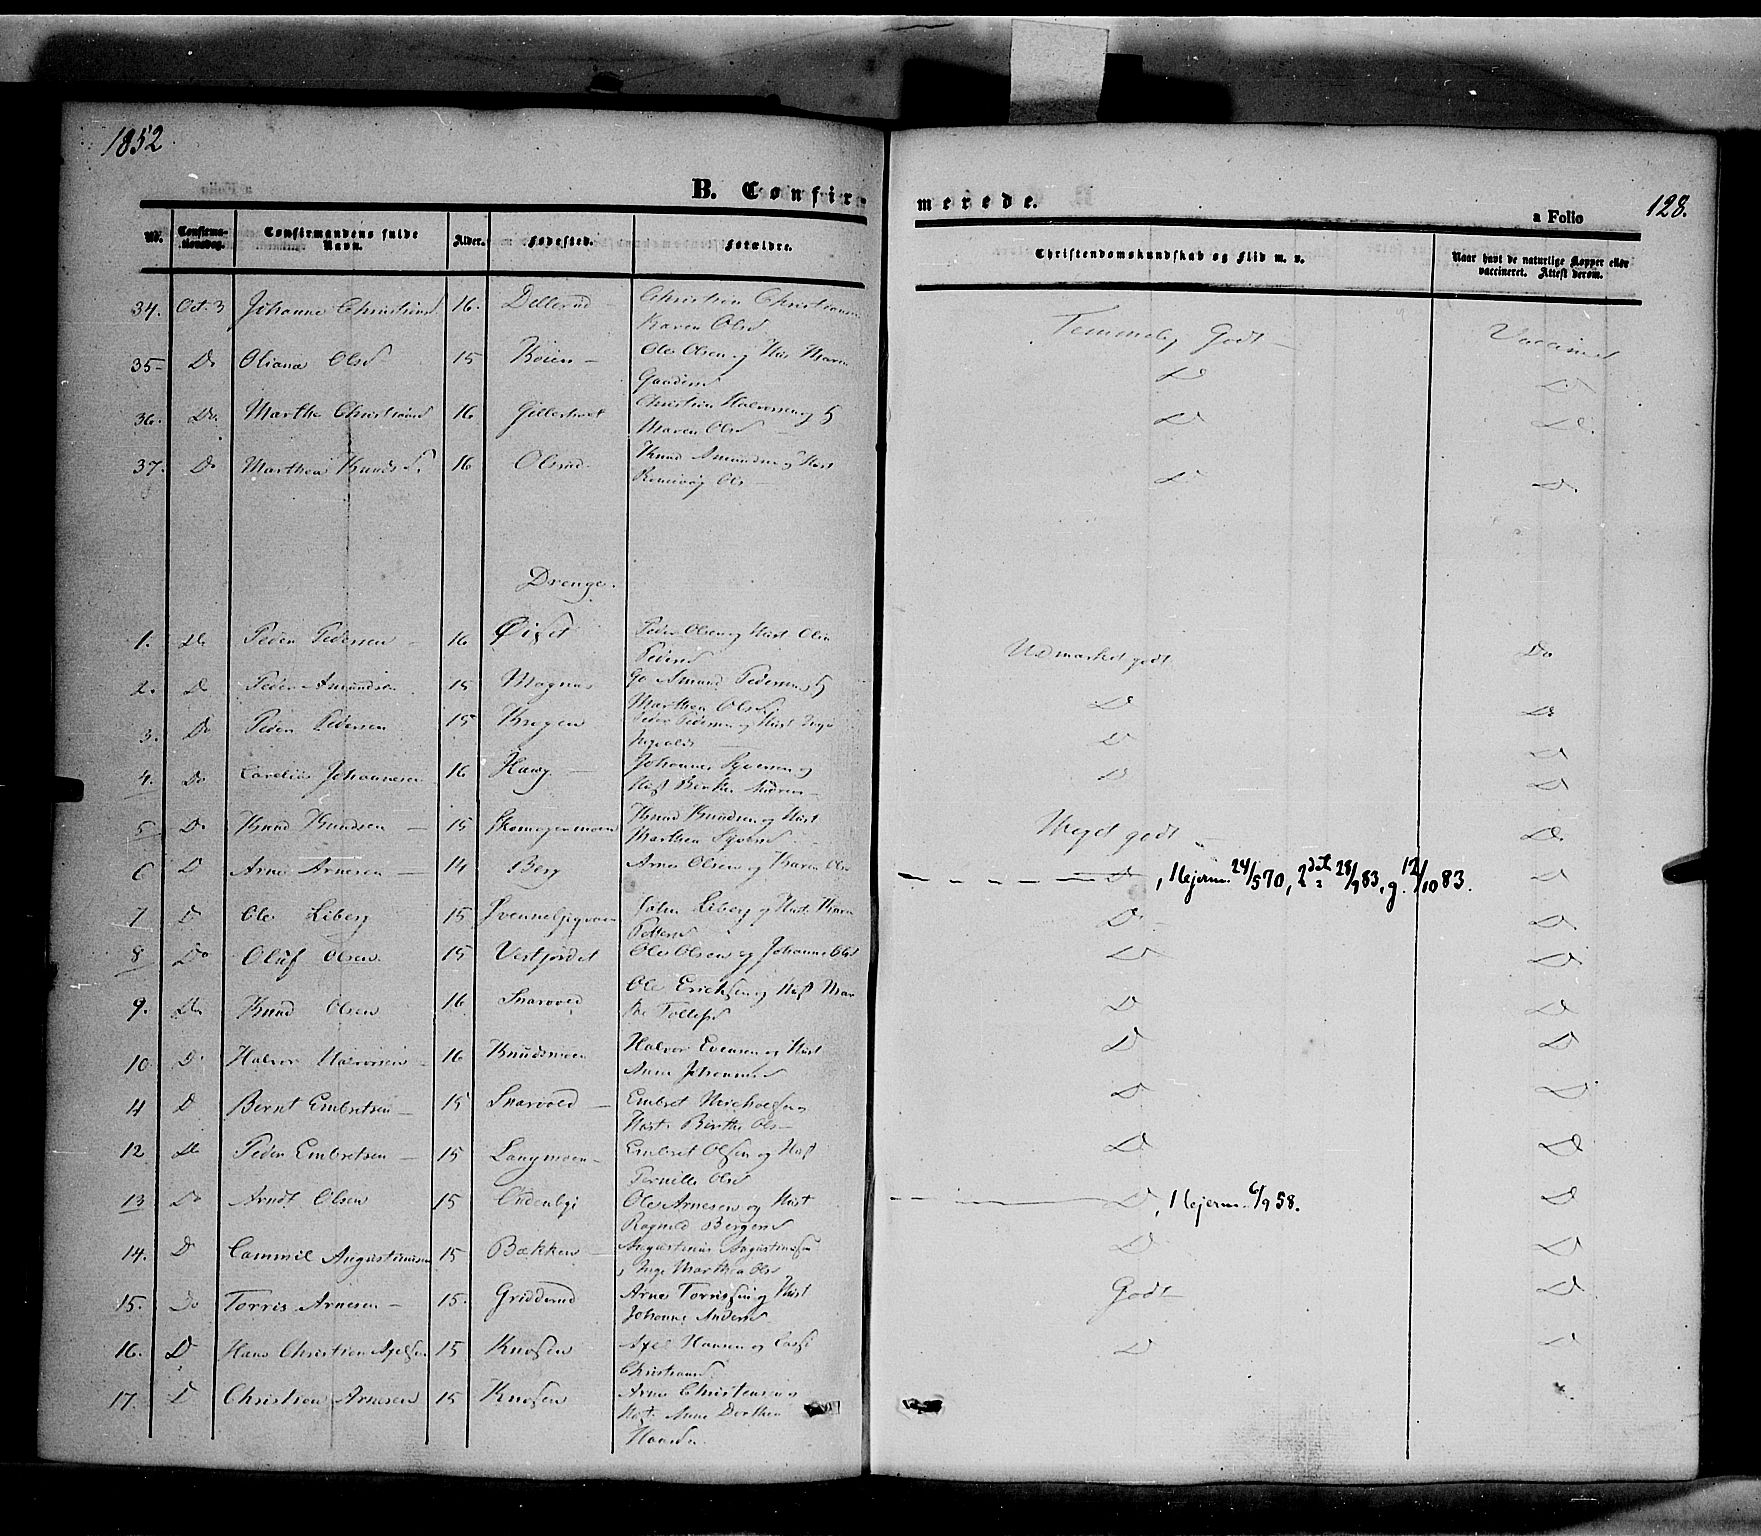 1852
128.
B. Confirmerede.
a Folio
No. Confirmationsdag. Confirmandens fulde Navn. Alder. Fødested. Forældre. Christendomskundskab og Flid m. v. Naar havt de naturlige Kopper eller vaccineret. Attest derom.
34. Oct. 3 Johanne Christiansd 16. Christen Christiansen
Karen Olsd Temmelig Godt Vaccineret
35 Do Oliana Olsd 15 Bøien Ole Olsen og Hust Maren
D D
36. Do. Marthe Christiansd 16 Christen Halvorsen og
Maren Olsd D D.
37. Do Marthea Knudsd. 16 Olsrud Knud Amundsen og Hust
Olsd D D.
Drenge.
1. Do Peder Pedersen 16 Øiset Peder Olsen og Hust Olia
Pedersd Udmærket godt Do
2. D Peder Amundsen 15 Magnus Amund Pedersen og
Marthea Olsd D Do
3. Do Peder Pedersen 15 Kragen Peder Pedersen og Hust Inge
D D
4. Do Corelius Johannesen 16 Haug Johannes Syversen og
Hust Birthe D D
5 Do Knud Knudsen 15 Skomagermoen Knud Knudsen og Hust
Marthea Syversd Meget godt D
6 D Arne Arnesen 14 Berg Arne Olsen og Karen Olsd
D, Hjerm. 24/5 70, 2det 28/9 83, g. 12/10 83. D
7 D Ole Liberg 15 John Liberg og Hust. Karen
D D
8 Do Oluf Olsen 15 Vestjordet Ole Olsen og Johanne Olsd D D
9. Do Knud Olsen 16 Snarvold Ole Ericksen og Hust Mar
the Tollefsd D D
10 D Halvor Halvorsen 16 Knudsmoen Halvor Evensen og Hust
Anne Johannesd D D
11 D Bernt Embretsen 15 Snarvold Embret Michelsen og
Hust. Birthe Olsd D D
12 Do Peder Embretsen 15 Langmoen Embret Olsen og Hust
Pernille Olsd D D
13 Do Arndt Olsen 15 Oudenbye Ole Arnesen og Hust
Ragnild Bergersd D, Hjerm. 6/9 58. D
14. D Cammil Augustinusen 15 Bækken Augustinus Augustinusen
Inge Marthea Olsd D D
15. Do Torris Arnesen 15. Gridderud Arne Torrissen og Hust
Johanne Andersd Godt D
16. D Hans Christian Axelsen 15 Knosen Axel Hansen og
Christiansd. D D
17. D Christian Arnesen 15 Knosen Arne Christensen og
Hust. Anne Dorthea